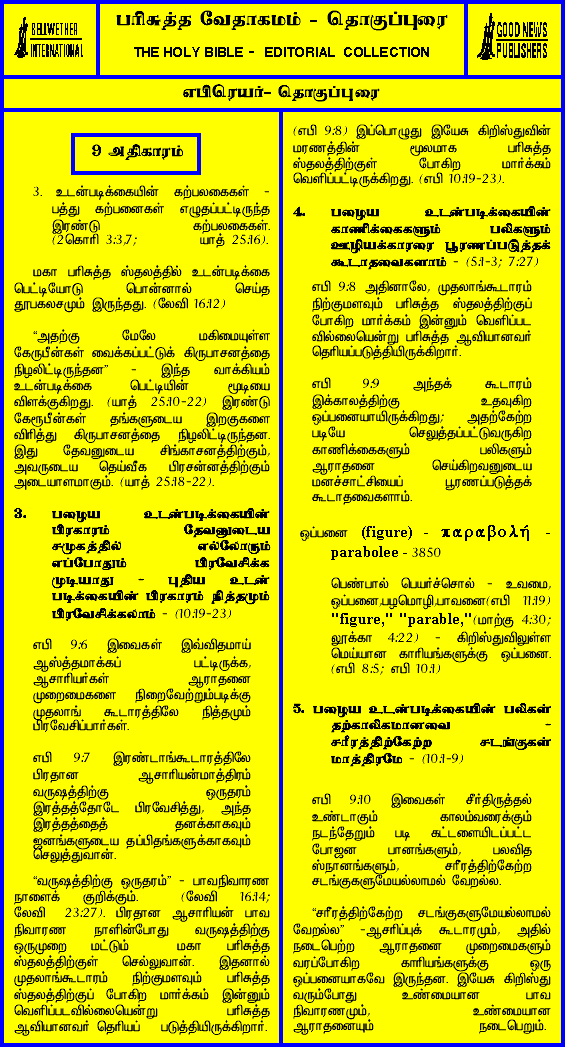 BELLWETHER
INTERNATIONAL
பரிசுத்த வேதாகமம் - தொகுப்புரை
THE HOLY BIBLE - EDITORIAL COLLECTION
GOOD NEWS
PUBLISHERS
எபிரெயர்- தொகுப்புரை
9 அதிகாரம்
3. உடன்படிக்கையின் கற்பலகைகள் -
பத்து கற்பனைகள் எழுதப்பட்டிருந்த
இரண்டு கற்பலகைகள்.
(2கொரி 3:3,7; யாத் 25:16).
மகா பரிசுத்த ஸ்தலத்தில் உடன்படிக்கை
பெட்டியோடு பொன்னால் செய்த
தூபகலசமும் இருந்தது. (லேவி 16:12)
“அதற்கு மேலே மகிமையுள்ள
கேருபீன்கள் வைக்கப்பட்டுக் கிருபாசனத்தை
நிழலிட்டிருந்தன” - இந்த வாக்கியம்
உடன்படிக்கை பெட்டியின் மூடியை
விளக்குகிறது. (யாத் 25:10-22) இரண்டு
கேரூபீன்கள் தங்களுடைய இறகுகளை
விரித்து கிருபாசனத்தை நிழலிட்டிருந்தன.
இது தேவனுடைய சிங்காசனத்திற்கும்,
அவருடைய தெய்வீக பிரசன்னத்திற்கும்
அடையாளமாகும். (யாத் 25:18-22).
3. பழைய உடன்படிக்கையின்
பிரகாரம் தேவனுடைய
சமுகத்தில் எல்லோரும்
எப்போதும் பிரவேசிக்க
முடியாது - புதிய உடன்
படிக்கையின் பிரகாரம் நித்தமும்
பிரவேசிக்கலாம் - (10:19-23)
எபி 9:6 இவைகள் இவ்விதமாய்
ஆஸ்த்தமாக்கப் பட்டிருக்க,
ஆசாரியர்கள் ஆராதனை
முறைமைகளை நிறைவேற்றும்படிக்கு
முதலாங் கூடாரத்திலே நித்தமும்
பிரவேசிப்பார்கள்.
எபி 9:7 இரண்டாங்கூடாரத்திலே
பிரதான ஆசாரியன்மாத்திரம்
வருஷத்திற்கு ஒருதரம்
இரத்தத்தோடே பிரவேசித்து, அந்த
இரத்தத்தைத் தனக்காகவும்
ஜனங்களுடைய தப்பிதங்களுக்காகவும்
செலுத்துவான்.
“வருஷத்திற்கு ஒருதரம்” - பாவநிவாரண
நாளைக் குறிக்கும். (லேவி 16:14;
லேவி 23:27). பிரதான ஆசாரியன் பாவ
நிவாரண நாளின்போது வருஷத்திற்கு
ஒருமுறை மட்டும் மகா பரிசுத்த
ஸ்தலத்திற்குள் செல்லுவான். இதனால்
முதலாங்கூடாரம் நிற்குமளவும் பரிசுத்த
ஸ்தலத்திற்குப் போகிற மார்க்கம் இன்னும்
வெளிப்படவில்லையென்று பரிசுத்த
ஆவியானவர் தெரியப் படுத்தியிருக்கிறார்.
(எபி 9:8) இப்பொழுது இயேசு கிறிஸ்துவின்
மரணத்தின் மூலமாக பரிசுத்த
ஸ்தலத்திற்குள் போகிற மார்க்கம்
வெளிப்பட்டிருக்கிறது. (எபி 10:19-23).
4. பழைய உடன்படிக்கையின்
காணிக்கைகளும் பலிகளும்
ஊழியக்காரரை பூரணப்படுத்தக்
கூடாதவைகளாம் - (5:1-3; 7:27)
எபி 9:8 அதினாலே, முதலாங்கூடாரம்
நிற்குமளவும் பரிசுத்த ஸ்தலத்திற்குப்
போகிற மார்க்கம் இன்னும் வெளிப்பட
வில்லையென்று பரிசுத்த ஆவியானவர்
தெரியப்படுத்தியிருக்கிறார்.
எபி 9:9 அந்தக் கூடாரம்
இக்காலத்திற்கு உதவுகிற
ஒப்பனையாயிருக்கிறது; அதற்கேற்ற
படியே செலுத்தப்பட்டுவருகிற
காணிக்கைகளும் பலிகளும்
ஆராதனை செய்கிறவனுடைய
மனச்சாட்சியைப் பூரணப்படுத்தக்
கூடாதவைகளாம்.
ஒப்பனை (figure) - παραβολή -
parabolee - 3850
பெண்பால் பெயர்ச்சொல் - உவமை,
ஒப்பனை,பழமொழி,பாவனை(எபி 11:19)
"figure," "parable,"(மாற்கு 4:30;
லூக்கா 4:22) - கிறிஸ்துவிலுள்ள
மெய்யான காரியங்களுக்கு ஒப்பனை.
(எபி 8:5; எபி 10:1)
5. பழைய உடன்படிக்கையின் பலிகள்
தற்காலிகமானவை -
சரீரத்திற்கேற்ற சடங்குகள்
மாத்திரமே - (10:1-9)
எபி 9:10 இவைகள் சீர்திருத்தல்
உண்டாகும் காலம்வரைக்கும்
நடந்தேறும் படி கட்டளையிடப்பட்ட
போஜன பானங்களும், பலவித
ஸ்நானங்களும், சரீரத்திற்கேற்ற
சடங்குகளுமேயல்லாமல் வேறல்ல.
“சரீரத்திற்கேற்ற சடங்குகளுமேயல்லாமல்
வேறல்ல” -ஆசரிப்புக் கூடாரமும், அதில்
நடைபெற்ற ஆராதனை முறைமைகளும்
வரப்போகிற காரியங்களுக்கு ஒரு
ஒப்பனையாகவே இருந்தன. இயேசு கிறிஸ்து
வரும்போது உண்மையான பாவ
நிவாரணமும், உண்மையான
ஆராதனையும் நடைபெறும்.